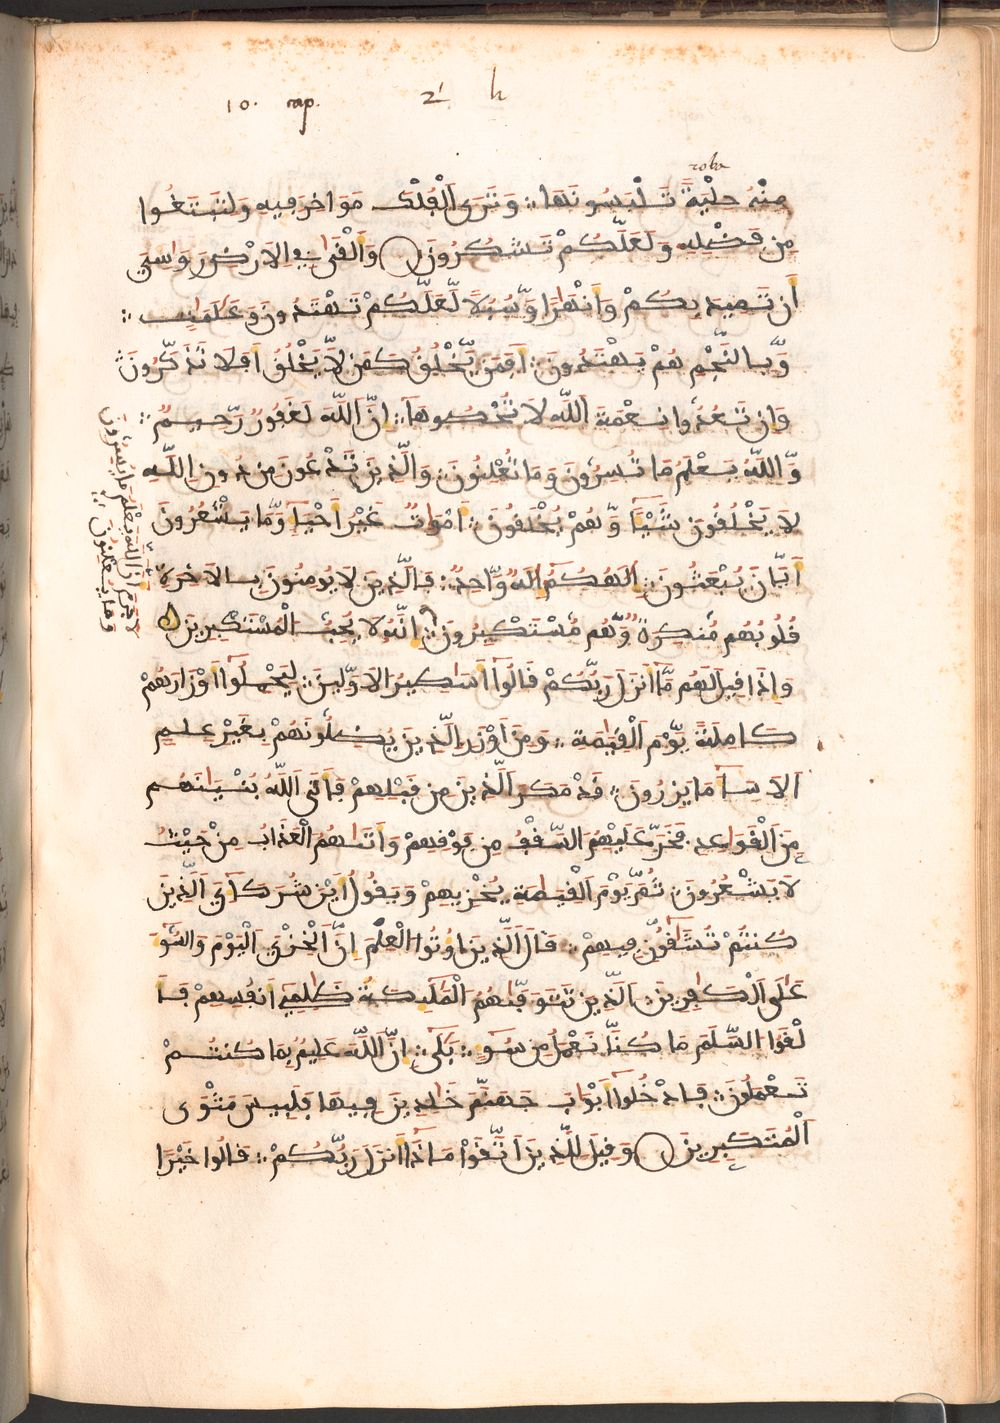 10. cap. 2 h
roba
مِنْهُ حِلْيَةً تَلْبَسُونَهَا وَتَرَى اَلْفُلْكَ مَوَاخِرَ فِيهِ وَلِتَبْتَغُوا
مِن فَضْلِهِ وَلَعَلَّكُمْ تَشْكُرُونَ وَأَلْقَىٰ فِي اِلَارْضِ رَوَاسِيَ
أَن تَمِيدَ بِكُمْ وَأَنْهَٰرًا وَّسُبُلًا لَّعَلَّكُمْ تَهْتَدُونَ وَعَلَٰمَٰتٍ
وَّبِالنَّجْمِ هُمْ يَهْتَدُونَ أَفَمَن يَّخْلُقُ كَمَن لَّا يَخْلُقُ أَفَلَا تَذَّكَّرُونَ
وَإِن تَعُدُّوا نِعْمَةَ اَللَّهِ لَا تُحْصُوهَا إِنَّ اَللَّهَ لَغَفُورٌ رَّحِيمٌ
وَّاللَّهُ يَعْلَمُ مَا تُسِرُّونَ وَمَا تُعْلِنُونَ وَالَّذِينَ تَدْعُونَ مِن دُونِ اِللَّهِ
لَا يَخْلُقُونَ شَيْـًٔا وَّهُمْ يُخْلَقُونَ أَمْوَٰتٌ غَيْرُ أَحْيَآءٍ وَّمَا يَشْعُرُونَ
أَيَّانَ يُبْعَثُونَ إِلَٰهُكُمُ إِلَٰهٌ وَّاحِدٌ فَالَّذِينَ لَا يُومِنُونَ بِالَاخِرَةِ
قُلُوبُهُم مُّنكِرَةٌ وَّهُم مُّسْتَكْبِرُونَ إِنَّهُ لَا يُحِبُّ الْمُسْتَكْبِرِينَ
وَإِذَا قِيلَ لَهُم مَّا أَنزَلَ رَبُّكُمْ قَالُوا أَسَٰطِيرُ الَاوَّلِينَ لِيَحْمِلُوا أَوْزَارَهُمْ
كَامِلَةً يَّوْمَ اَلْقِيَٰمَةِ وَمِنَ أَوْزَارِ الَّذِينَ يُضِلُّونَهُمْ بِغَيْرِ عِلْمٍ
اَلَا سَآءَ مَا يَزِرُونَ قَدْ مَكَرَ اَلَّذِينَ مِن قَبْلِهِمْ فَأَتَى اَللَّهُ بُنْيَٰنَهُم
مِّنَ اَلْقَوَاعِدِ فَخَرَّ عَلَيْهِمُ السَّقْفُ مِن فَوْقِهِمْ وَأَتَىٰهُمُ الْعَذَابُ مِنْ حَيْثُ
لَا يَشْعُرُونَ ثُمَّ يَوْمَ اَلْقِيَٰمَةِ يُخْزِيهِمْ وَيَقُولُ أَيْنَ شُرَكَآءِيَ اَلَّذِينَ
كُنتُمْ تُشَٰٓقُّونِ فِيهِمْ قَالَ اَلَّذِينَ أُوتُوا الْعِلْمَ إِنَّ اَلْخِزْيَ اَلْيَوْمَ وَالسُّوٓءَ
عَلَى اَلْكَٰفِرِينَ اَلَّذِينَ تَتَوَفَّىٰهُمُ الْمَلَٰٓئِكَةُ ظَالِمِي أَنفُسِهِمْ فَأَ
لْقَوُا السَّلَمَ مَا كُنَّا نَعْمَلُ مِن سُوٓءٍ بَلَىٰ إِنَّ اَللَّهَ عَلِيمٌ بِمَا كُنتُمْ
تَعْمَلُونَ فَادْخُلُوا أَبْوَٰبَ جَهَنَّمَ خَٰلِدِينَ فِيهَا فَلَبِيسَ مَثْوَى
اَلْمُتَكَبِّرِينَ وَقِيلَ لِلَّذِينَ اَتَّقَوْا مَاذَا أَنزَلَ رَبُّكُمْ قَالُوا خَيْرًا
لَا جَرَمَ أَنَّ اَللَّهَ يَعْلَمُ مَا يُسِرُّونَ
وَمَا يُعْلِنُونَ